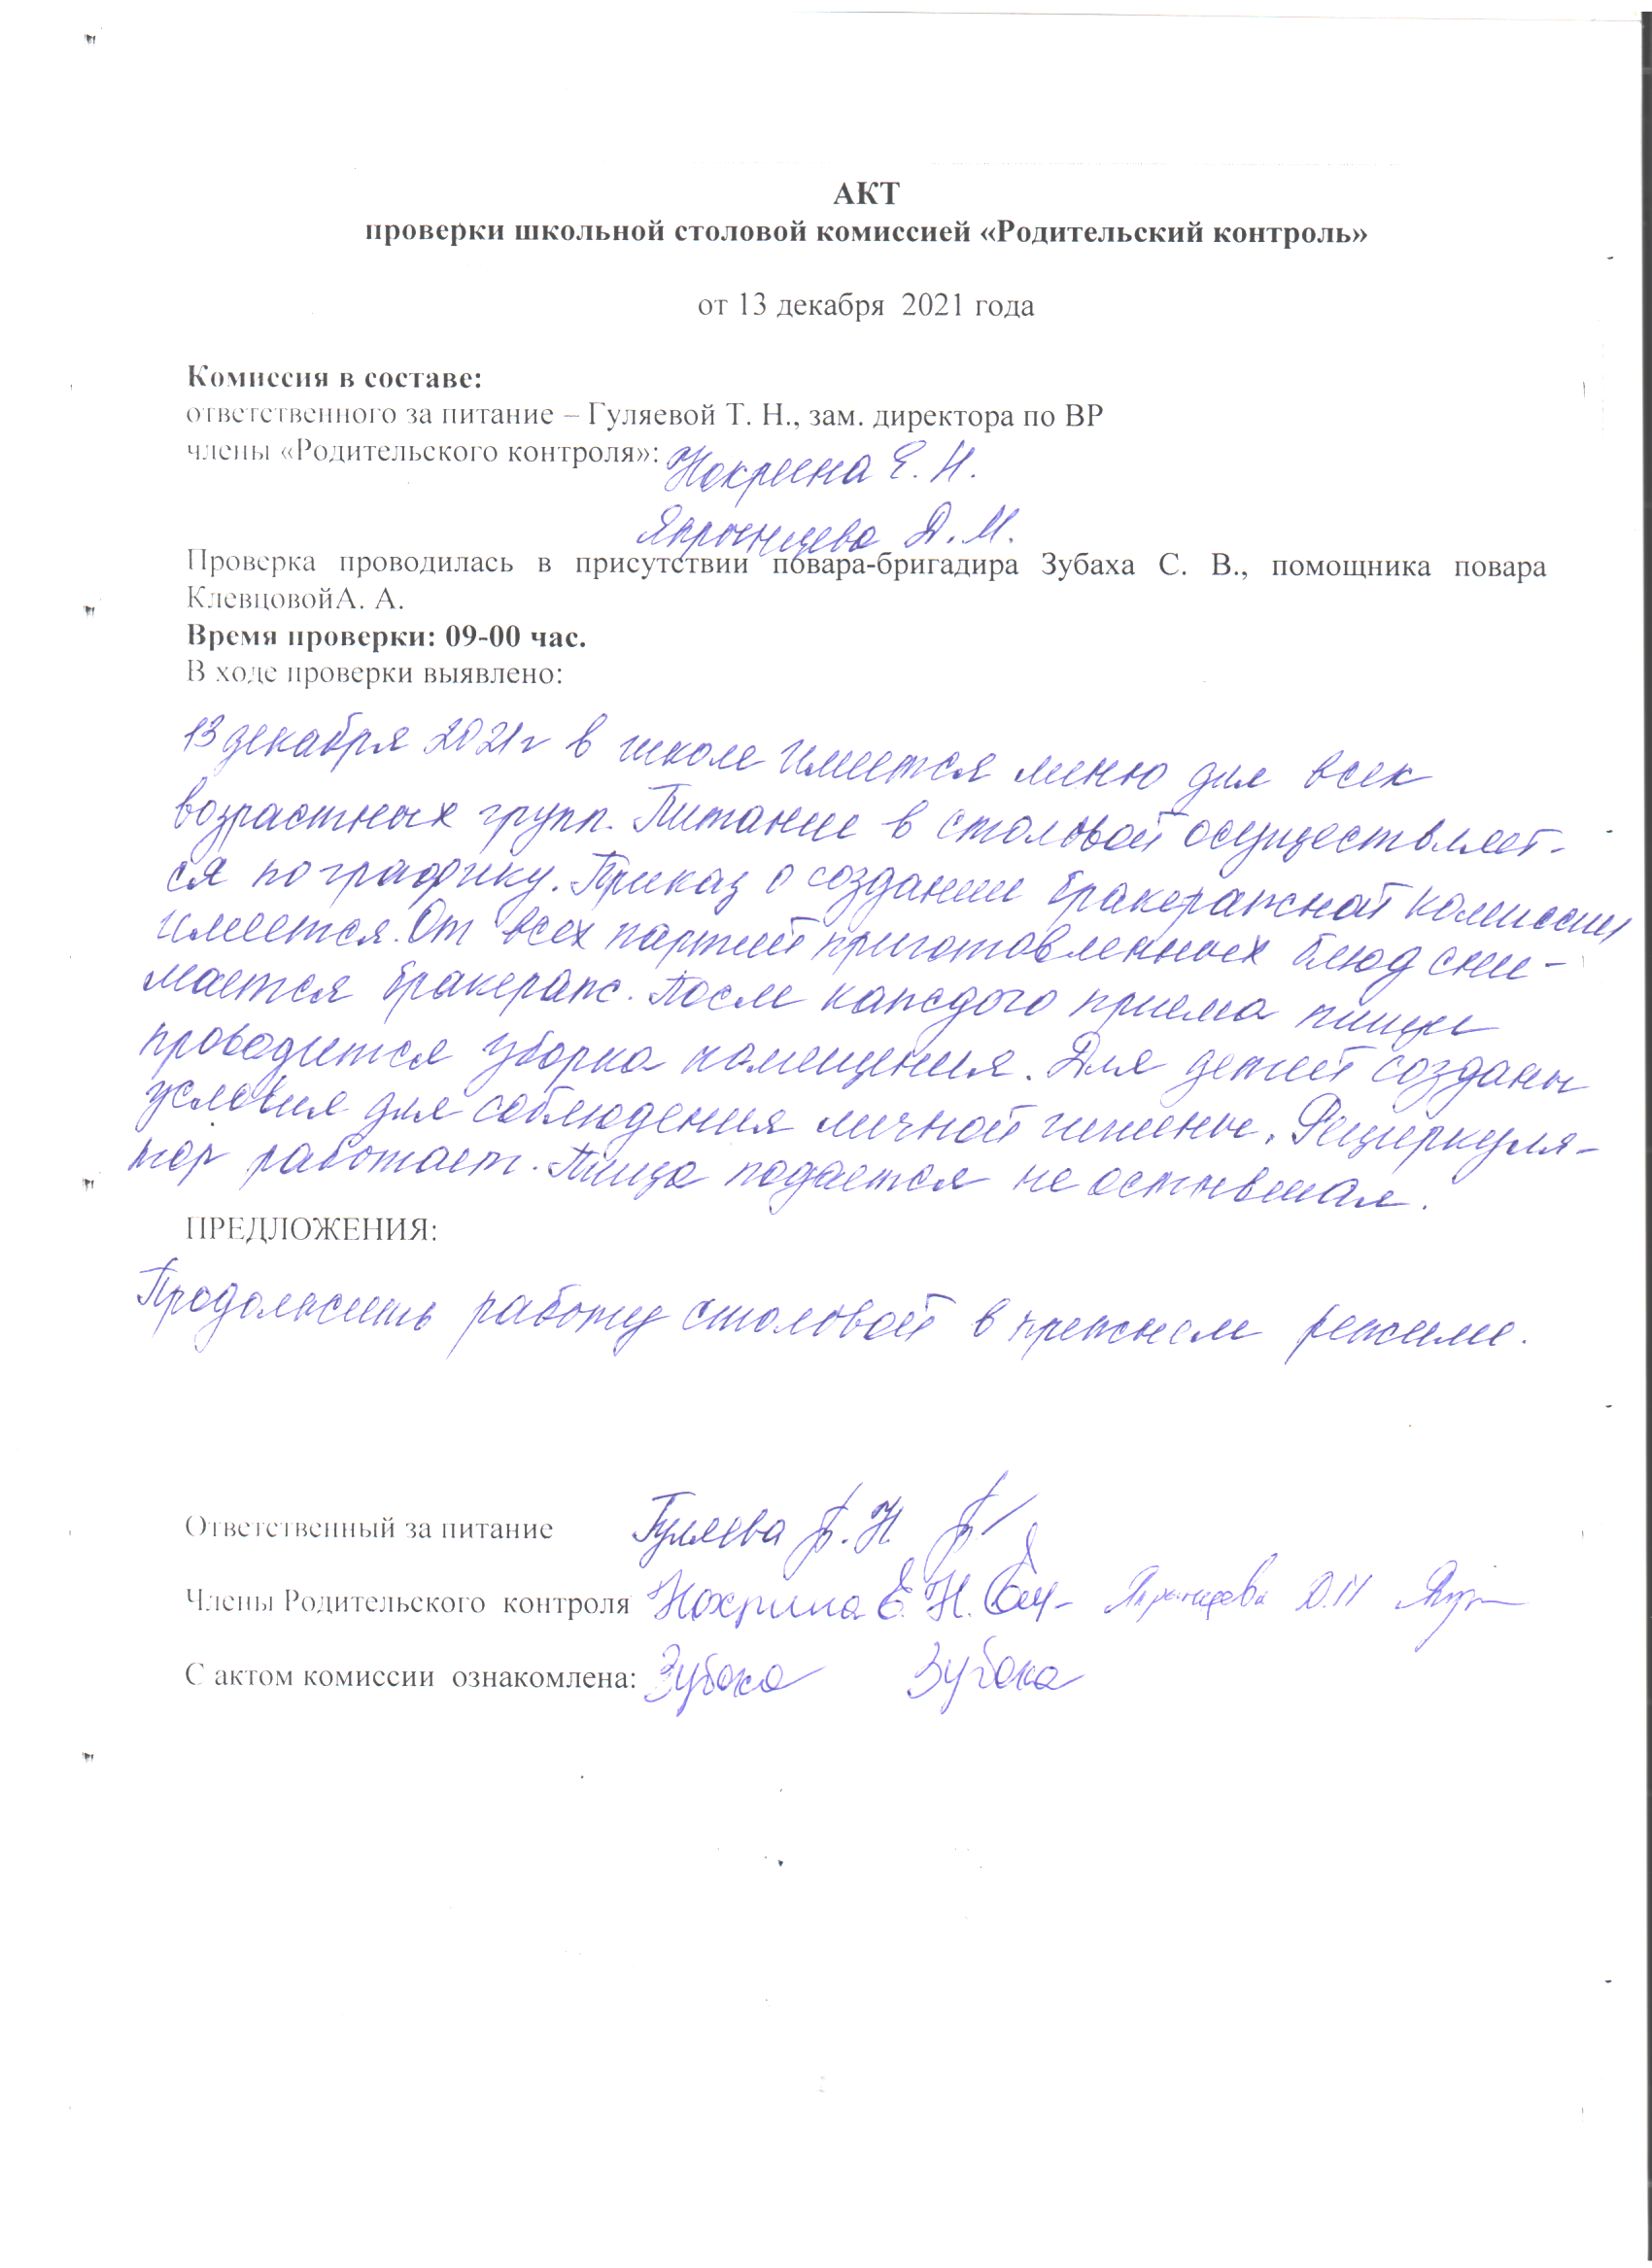 АКТ
проверки школьной столовой комиссией «Родительский контроль»
от 13 декабря 2021 года
Комиссия в составе:
ответственного за питание – Гуляевой Т. Н., зам. директора по ВР
члены «Родительского контроля»: Нохрина Е. Н.
Д. М.
Проверка проводилась в присутствии повара-бригадира Зубаха С. В., помощника повара
КлевцовойА. А.
Время проверки: 09-00 час.
В ходе проверки выявлено:
13 декабря 2021г в школе имеется меню для всех
возрастных групп. Питание в столовой осуществляет-
ся по графику. Приказ о создании бракеражной комиссии
имеется. От всех партий приготовленных блюд сни-
мается бракераж. После каждого приема пищи
проводится уборка помещения. Для детей созданы
условия для соблюдения личной гигиены. Рециркуля-
тор работает. Пища подается не остывшая.
ПРЕДЛОЖЕНИЯ:
Продолжить работу столовой в прежнем режиме.
Ответственный за питание Гуляева Т. Н
Члены Родительского контроля Нохрина Е. Н. Д.М
С актом комиссии ознакомлена: Зубаха Зубаха